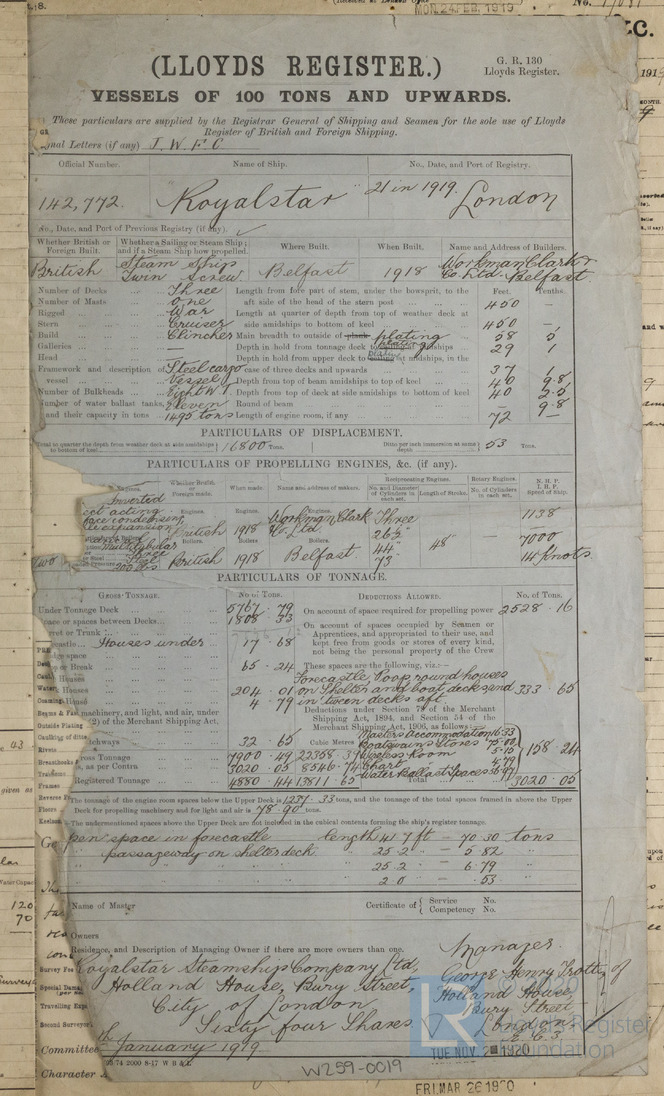 MON 24 FEB. 1919
No.
(LLOYDS REGISTER.)
G. R. 130
Lloyds Register.
VESSELS OF 100 TONS AND UPWARDS.
These particulars are supplied by the Registrar General of Shipping and Seamen for the sole use of Lloyds
Register of British and Foreign Shipping.
nal Letters (if any) J. W. F. C
Official Number. Name of Ship. No., Date, and Port of Registry.
142,772. "Royalstar" 21 in 1919. London
No., Date, and Port of Previous Registry (if any).
Whether British or Foreign Built. Whether a Sailing or Steam Ship; and if a Steam Ship how propelled. Where Built. When Built. Name and Address of Builders.
British Steam Ship Twin Screw Belfast 1918 Workman Clark & Co. Ltd. Belfast
Number of Decks Three Length from fore part of stem, under the bowsprit, to the Feet. Tenths.
Number of Masts One aft side of the head of the stern post 450 —
Rigged War Length at quarter of depth from top of weather deck at
Stern Cruiser side amidships to bottom of keel 450 —
Build Clincher Main breadth to outside of plank plating 58 5
Galleries Depth in hold from tonnage deck to midships 29 1
Head — Depth in hold from upper deck to amidships, in the
Framework and description of Steel cargo case of three decks and upwards 37 1
vessel Vessel Depth from top of beam amidships to top of keel 40 9.8
Number of Bulkheads Eight W.T. Depth from top of deck at side amidships to bottom of keel 40 2.5
Number of water ballast tanks, Eleven Round of beam — 9.8
and their capacity in tons 1495 tons Length of engine room, if any 72 —
PARTICULARS OF DISPLACEMENT.
Total to quarter the depth from weather deck at side amidships to bottom of keel 16800 Tons. Ditto per inch immersion at same depth 53 Tons.
PARTICULARS OF PROPELLING ENGINES, &c. (if any).
Whether British, or Foreign made. When made. Name and address of makers. Reciprocating Engines. Rotary Engines. N. H. P.
No. and Diameter of Cylinders in each set. Length of Stroke. No. of Cylinders in each set. I. H. P. Speed of Ship.
Inverted Engines. Engines. Engines.
ect acting Workman Clark Three 1138
face condensing British 1918 & Co. Ltd 26½"
le expansion Boilers. Boilers. Boilers. 44" 48" 7000
Multitubular British 1918 Belfast. 73" 14 knots
Steel
200 lbs
PARTICULARS OF TONNAGE.
Gross Tonnage. No. of Tons. Deductions Allowed. No. of Tons.
Under Tonnage Deck 5767 . 79 On account of space required for propelling power 2528 . 16
ace or spaces between Decks 1808 . 33 On account of spaces occupied by Seamen or
rret or Trunk Apprentices, and appropriated to their use, and
castle Houses under 17 . 68 kept free from goods or stores of every kind,
space not being the personal property of the Crew
or Break 65 . 24 These spaces are the following, viz.:—
Houses Forecastle, Poop, round houses
Houses 204 . 01 on Shelter and boat decks and 333 . 65
4 . 79 in tween decks aft.
machinery, and light, and air, under Deductions under Section 79 of the Merchant Shipping
(2) of the Merchant Shipping Act, Act, 1894, and Section 54 of the
Merchant Shipping Act, 1906, as follows:—
Masters Accommodation 16.33
tchways 32 . 65 Cubic Metres Boatswains Stores 75.00
ross Tonnage 7900 . 49 22358 . 39 Wireless Room 5.15 158 . 24
s, as per Contra 3020 . 05 8546 . 74 Chart 4.79
Registered Tonnage 4880 . 44 13811 . 65 Water Ballast Spaces 56.97
Total 3020 . 05
The tonnage of the engine room spaces below the Upper Deck is 1237 . 33 tons, and the tonnage of the total spaces framed in above the Upper
Deck for propelling machinery and for light and air is 78 . 90 tons.
The undermentioned spaces above the Upper Deck are not included in the cubical contents forming the ship's register tonnage.
pen space in forecastle length 41.7 ft — 70.30 tons
" passageway on shelter deck " 25.2 — 5.82 "
" " " 25.2 — 6.79 "
" " " 2.0 — .53 "
Name of Master Certificate of Service No.
Competency No.
Owners
Residence, and Description of Managing Owner if there are more owners than one.
Manager.
Royalstar Steamship Company Ltd, George Henry Trotter of
Holland House, Bury Street, Holland House,
City of London Bury Street
Sixty four Shares London E.C.3.
January 1919
TUE NOV. 2 1920
Committee
Character
W259-0019
FRI. MAR 26 1920
LR
Lloyd's Register
Foundation